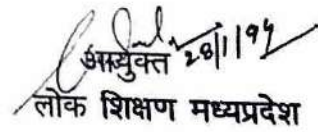 आयुक्त 28/1/94
लोक शिक्षण मध्यप्रदेश